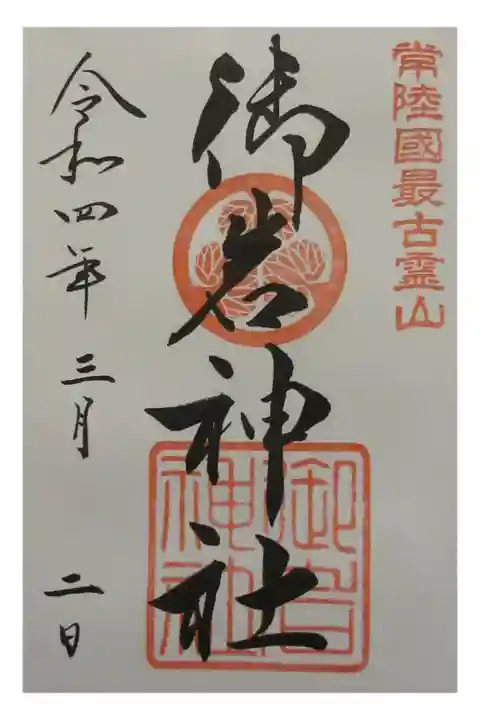 常陸國最古霊山
御岩神社
御岩神社
令和四年三月二日